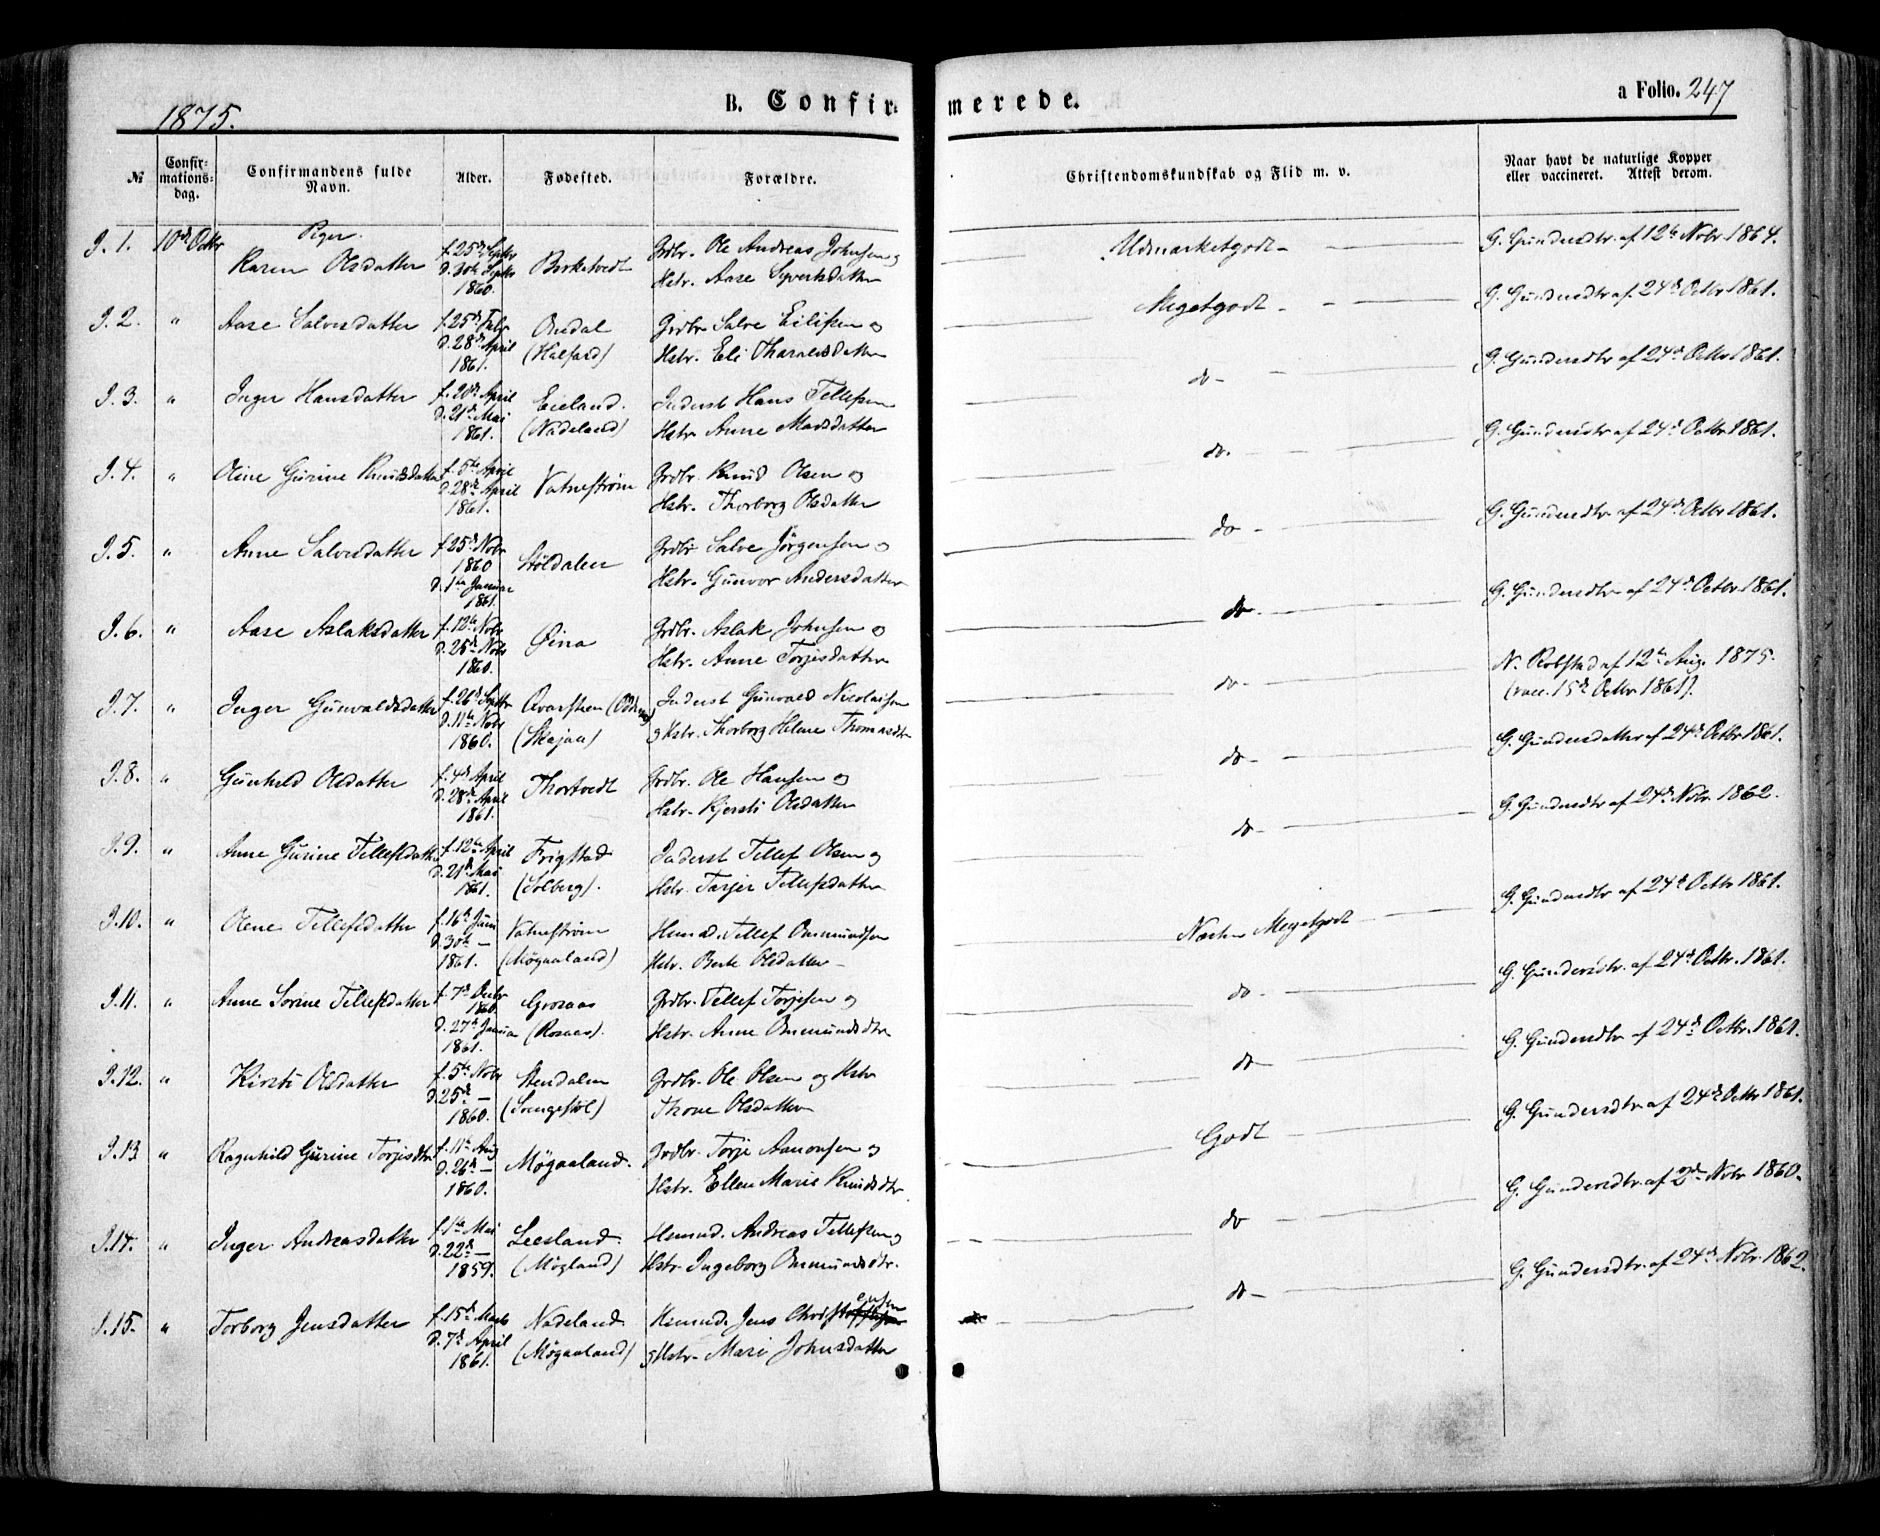 1875.
B. Confirmerede.
a Folio. 247
№
Confirmations-dag.
Confirmandens fulde Navn.
Alder.
Fødested.
Forældre.
Christendomskundskab og Flid m. v.
Naar havt de naturlige Kopper eller vaccineret. Attest derom.
Piger.
J. 1. 10de Octbr Karen Olsdatter f. 25de Septbr D. 30te Septbr 1860. Birketvedt Grdbr. Ole Andreas Johnsen og Hstr. Aase Syvertsdatter Udmærketgodt G. Gundersdtr. af 12te Nobr. 1864.
J. 2. " Aase Salvesdatter f. 25de Febr D. 28de April 1861. Ondal (Halfard) Grdbr Salve Eilifsen og Hstr. Eli Tharaldsdatter Megetgodt G. Gundersdtr af 24de Octbr 1861.
J. 3. " Inger Hansdatter f. 20de April D. 21de Mai 1861. Eieland. (Nadeland) Inderst Hans Tellefsen Hstr Anne Madsdatter do G. Gundersdtr af 24de Octbr 1861.
J. 4. " Olene Gurine Knudsdatter f. 5te April D. 28de April 1861. Vatnestrøm Grdbr. Knud Olsen og Hstr. Thorborg Olsdatter do. G. Gundersdtr af 24de Octbr 1861.
J. 5. " Anne Salvesdatter f. 25de Nobr 1860 D. 1te Januar 1861. Støldalen Grdbr Salve Jørgensen og Hstr. Gunvor Andersdatter do G. Gundersdtr af 24de Octbr 1861.
J. 6. " Aase Aslaksdatter f. 12te Nobr D. 25de Nobr 1860. Øina Grdbr. Aslak Johnsen og Hstr. Anne Torjisdatter do. G. Gundersdtr af 24de Octbr 1861.
J. 7. " Inger Gunvaldsdatter f. 26de Septbr D. 11te Nobr 1860. Qvarsten (Skajaa) Inderst Gunvald Nicolaisen og Hstr. Thorborg Helene Thomasdtr do N. Robstad af 12te Aug. 1875. (vacc. 15de Octbr 1861).
J. 8. " Gunhild Olsdatter f. 4de April D. 28de April 1861. Thortvedt Grdbr. Ole Hansen og Hstr. Kjersti Olsdatter do G. Gundersdatter af 24de Octbr 1861.
J. 9. " Anne Gurine Tellefsdatter f. 12te April D. 21de Mai 1861. Frigstad (Solberg). Inderst Tellef Olsen og Hstr. Tarjer Tellefsdatter do G. Gundersdtr af 24de Nobr. 1862.
J. 10. " Olene Tellefsdatter f. 16de Juni D. 30te — 1861. Vatnestrøm (Møgaaland) Hsmd. Tellef Ommundsen Hstr. Berte Olsdatter Næsten Megetgodt G. Gundersdtr af 24de Octbr 1861.
J. 11. " Anne Sorine Tellefsdatter f. 7de Decbr 1860. D. 27de Januar 1861. Grosaas (Rosaas). Grdbr. Tellef Torjesen og Hstr. Anne Ommundsdtr do G. Gundersdtr. af 24de Octbr. 1861.
J. 12. " Kirsti Olsdatter f. 5te Nobr D. 25de — 1860. Stendalen (Songestøl) Grdbr. Ole Olsen og Hstr Thone Olsdatter do G. Gundersdtr af 24de Octbr. 1861.
J. 13 " Ragnhild Gurine Torjisdtr f. 11te Aug D. 26de — 1860. Møgaaland. Grdbr. Torje Aanonsen og Hstr. Ellen Marie Knudsdtr. Godt G. Gundersdtr. af 24de Octbr 1861.
J. 14. " Inger Andreasdatter f. 1te Mai D. 22de — 1859. Leesland. (Møgland) Hsmd. Andreas Tellefsen og Hstr. Ingeborg Ommundsdtr. do G. Gundersdtr. af 2de Nobr 1860.
J. 15. " Torborg Jensdatter f. 15de Marts D. 7de April 1861. Nadeland. (Møgaaland) Hsmd. Jens Christensen og Hstr. Mari Johnsdatter do G. Gundersdtr. af 24de Nobr. 1862.